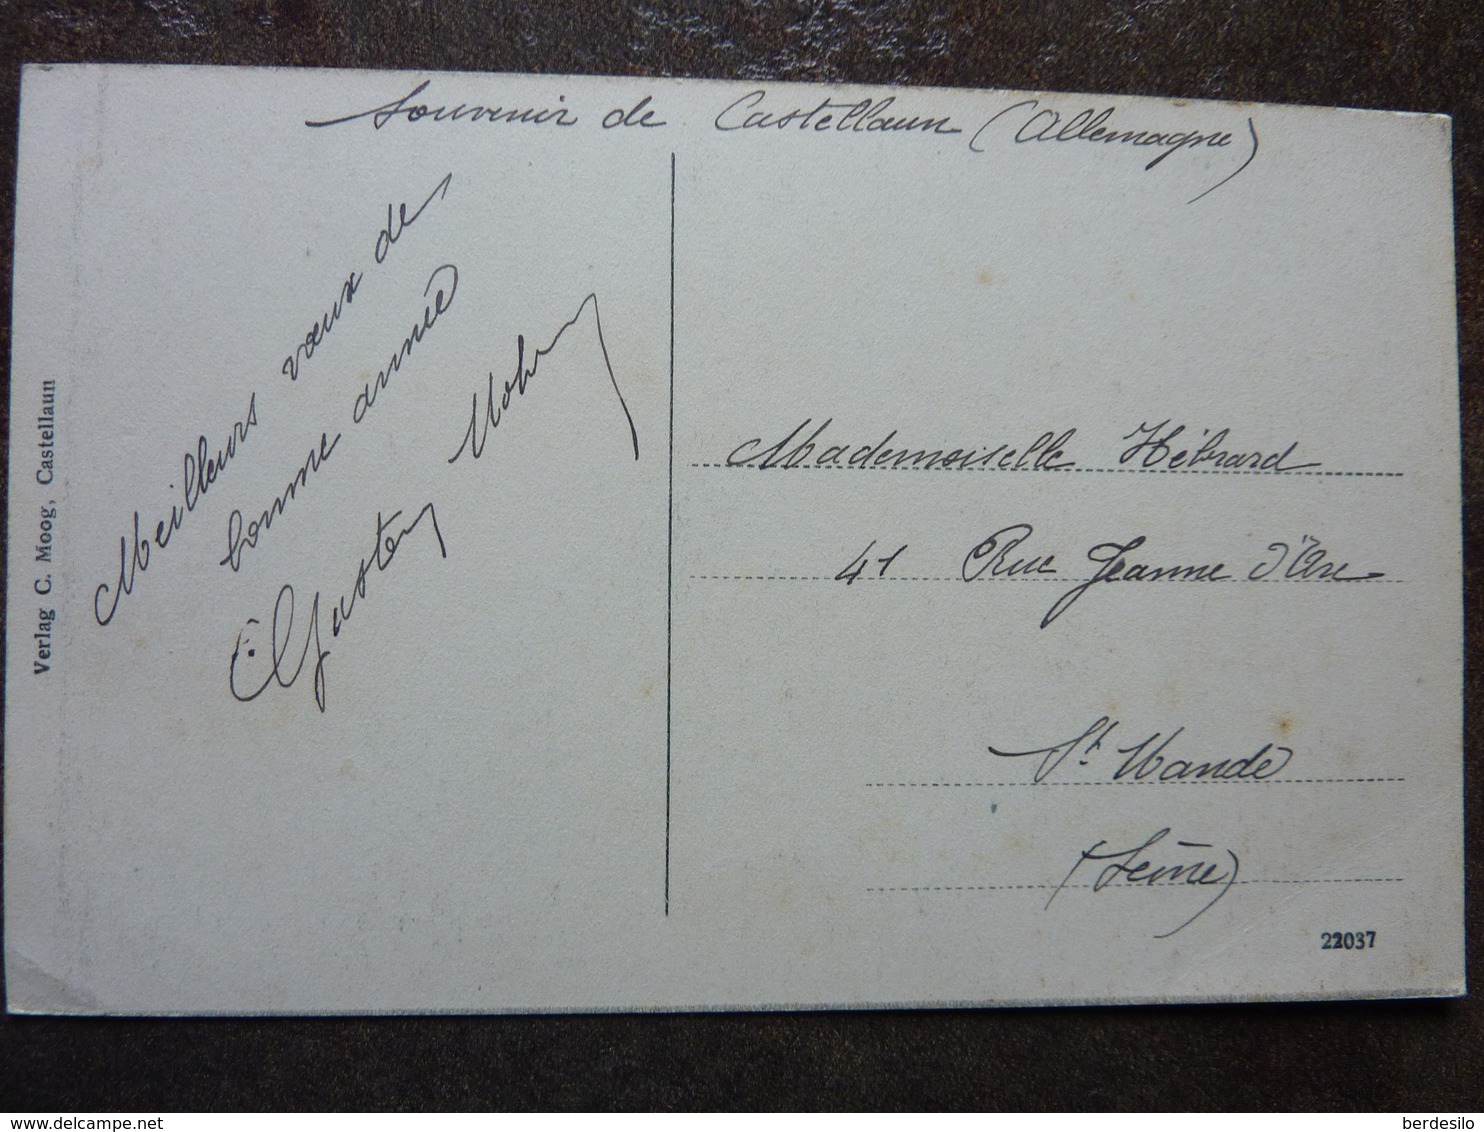 Souvenir de Castellaun (Allemagne)
Meilleurs vœux de
bonne année
Mademoiselle Hébrard
41 Rue Jeanne d'Arc
St. Mandé
(Seine)
22037
Verlag C. Moog, Castellaun
berdesilo